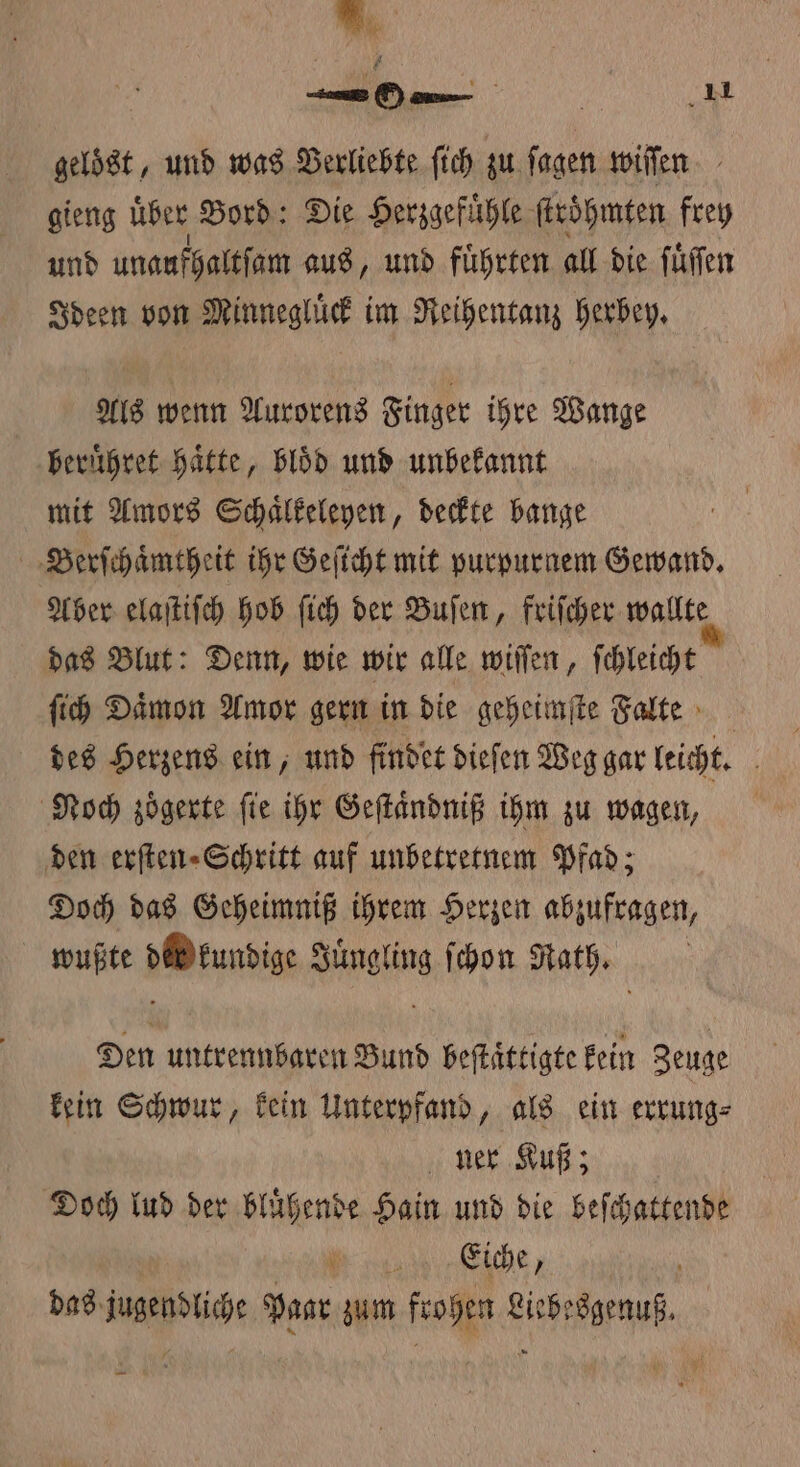 11
gelöst, und was Verliebte ſich zu ſagen wiſſen
gieng über Bord: Die Herzgefühle ſtröhmten frey
und unaufhaltſam aus, und führten all die ſüſſen
Ideen von Minneglück im Reihentanz herbey.
Als wenn Aurorens Finger ihre Wange
berühret hätte, blöd und unbekannt
mit Amors Schälkeleyen, deckte bange
Verſchämtheit ihr Geſicht mit purpurnem Gewand.
Aber elaſtiſch hob ſich der Buſen, friſcher wallte
das Blut: Denn, wie wir alle wiſſen, ſchleicht
ſich Dämon Amor gern in die geheimſte Falte
des Herzens ein, und findet dieſen Weg gar leicht.
Noch zögerte ſie ihr Geſtändniß ihm zu wagen,
den erſten Schritt auf unbetretnem Pfad;
Doch das Geheimniß ihrem Herzen abzufragen,
wußte der kundige Jüngling ſchon Rath.
Den untrennbaren Bund beſtättigte kein Zeuge
kein Schwur, kein Unterpfand, als ein errung-
ner Kuß;
Doch lud der blühende Hain und die beſchattende
Eiche,
das jugendliche Paar zum frohen Liebesgenuß.